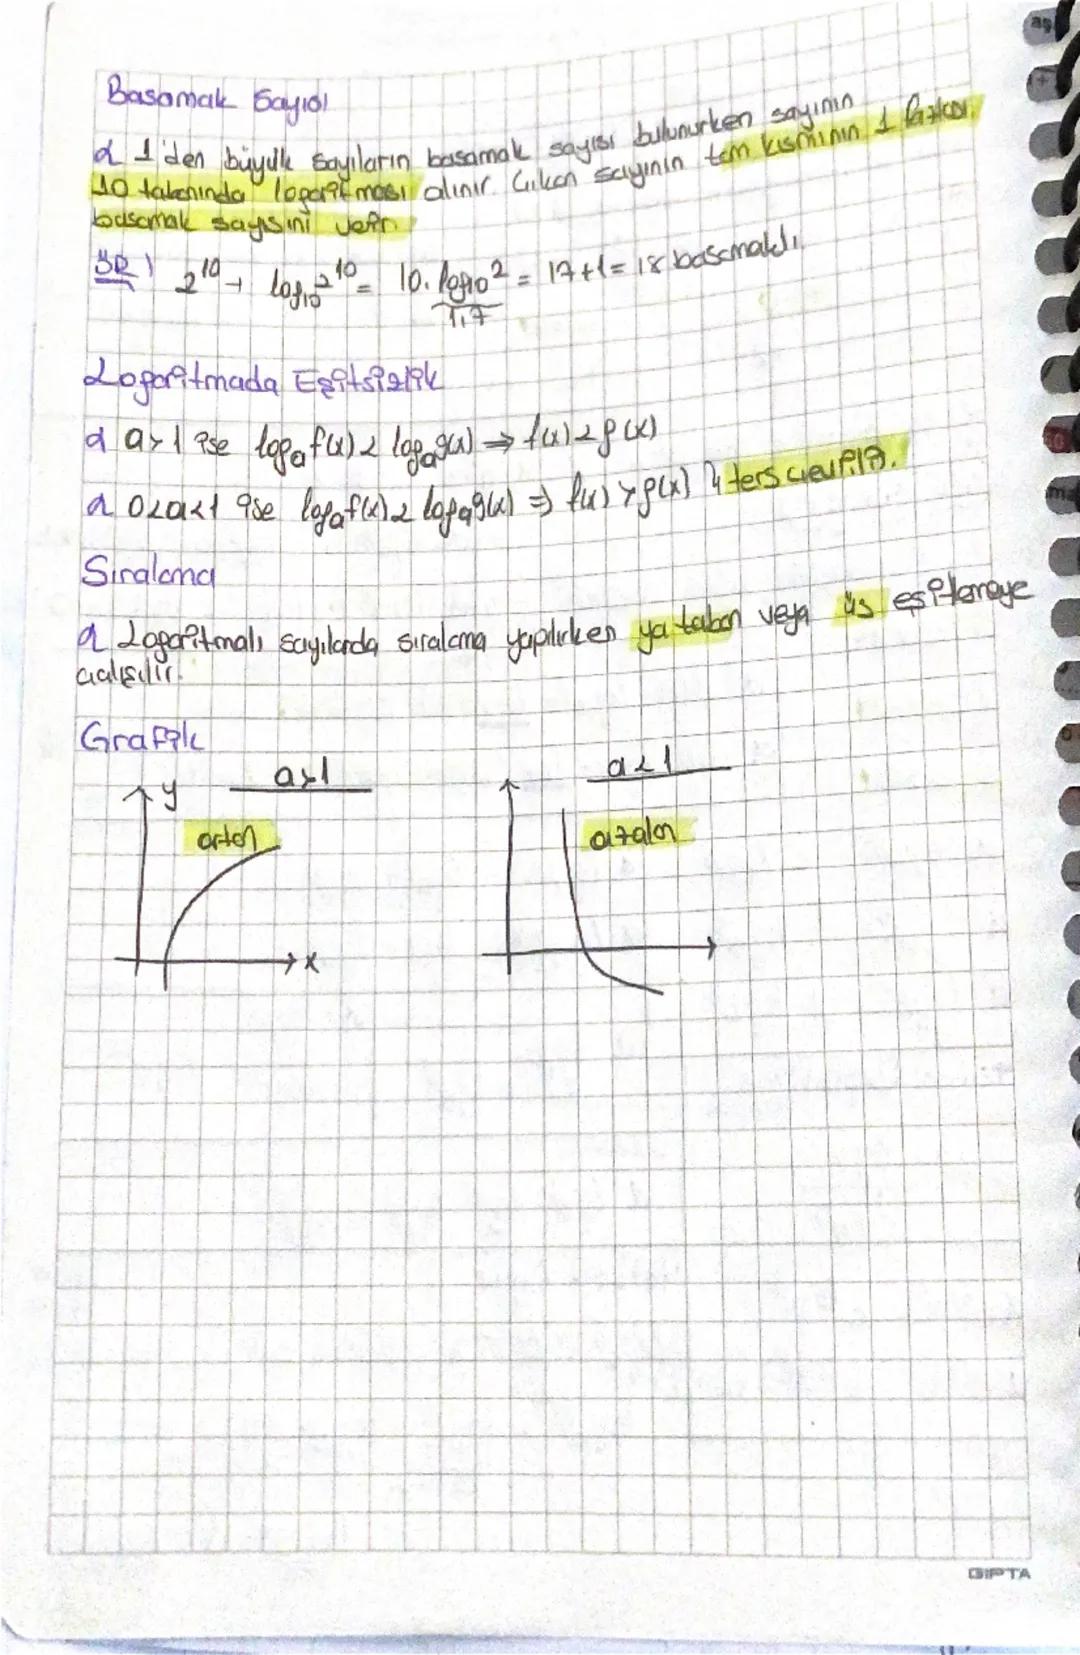 Basamak Sayısı
α 1'den büyük sayıların basamak sayısı bulunurken sayının
10 tabanında logaritması alınır. Çıkan sayının tam kısmının 1 fazlası
basamak sayısını verir
ÖR) 2¹⁰ → log₁₀2¹⁰ = 10. log₁₀2 = 17+1 = 18 basamaklı
1,7
Logaritmada Eşitsizlik
α a>1 ise logₐf(x) < logₐg(x) ⇒ f(x) < g(x)
α 0<a<1 ise logₐf(x) < logₐg(x) ⇒ f(x) > g(x) ↳ ters çevrilir.
Sıralama
α Logaritmalı sayılarda sıralama yapılırken ya taban veya üs eşitlemeye
çalışılır.
Grafik
a>1
a<1
y
artan
azalan
x
GIPTA